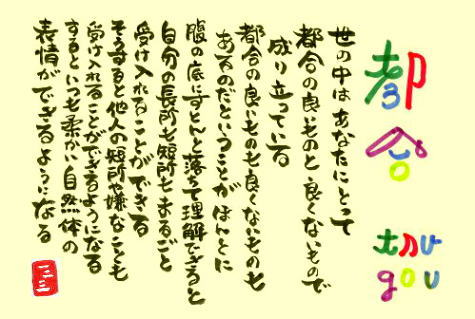 都合
tsu
gou
世の中はあなたにとって
都合の良いものと良くないもので
成り立っている
都合の良いものも良くないものも
あるのだということがほんとに
腹の底にすとんと落ちて理解できると
自分の長所も短所もまるごと
受け入れることができる
そうすると他人の短所や嫌なことも
受け入れることができるようになる
するといつも柔かい自然体の
表情ができるようになる